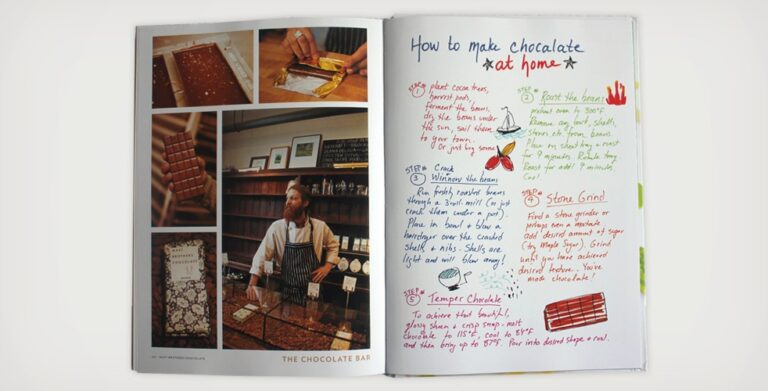 MAST BROTHERS CHOCOLATE
THE CHOCOLATE BAR
How to make chocalate
at home
STEP 1
plant cocoa trees,
harvest pods,
ferment the beans,
dry the beans under
the sun, sail them
to your town.
Or just buy some
STEP 2 Roast the beans
preheat oven to 300°F
Remove any twigs, shells,
stones etc. from beans
Place on sheet tray & roast
for 9 minutes. Rotate tray.
Roast for addl 9 minutes
Cool!
STEP 3 Crack
Winnow the beans
Run freshly roasted beans
through a mill (or just
crack them under a pot).
Place in bowl & blow a
hairdryer over the cracked
shells & nibs. Shells are
light and will blow away!
STEP 4 Stone Grind
Find a stone grinder or
perhaps even a
add desired amount of sugar
(try Maple Sugar). Grind
until you have achieved
desired texture.. You've
made chocolate!
STEP 5 Temper Chocolate
To achieve that beautiful,
glossy sheen & crisp snap - melt
chocolate to 115°F, cool to 84°F
and then bring up to 87°F. Pour into desired shape & cool.